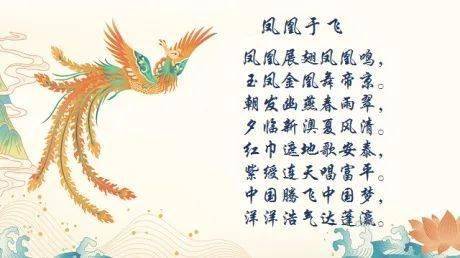 凤凰于飞
凤凰展翅凤凰鸣，
玉凤金凰舞帝京。
朝发幽燕春雨翠，
夕临新澳夏风清。
红巾远地歌安泰，
紫绶连天唱富平。
中国腾飞中国梦，
洋洋浩气达蓬瀛。